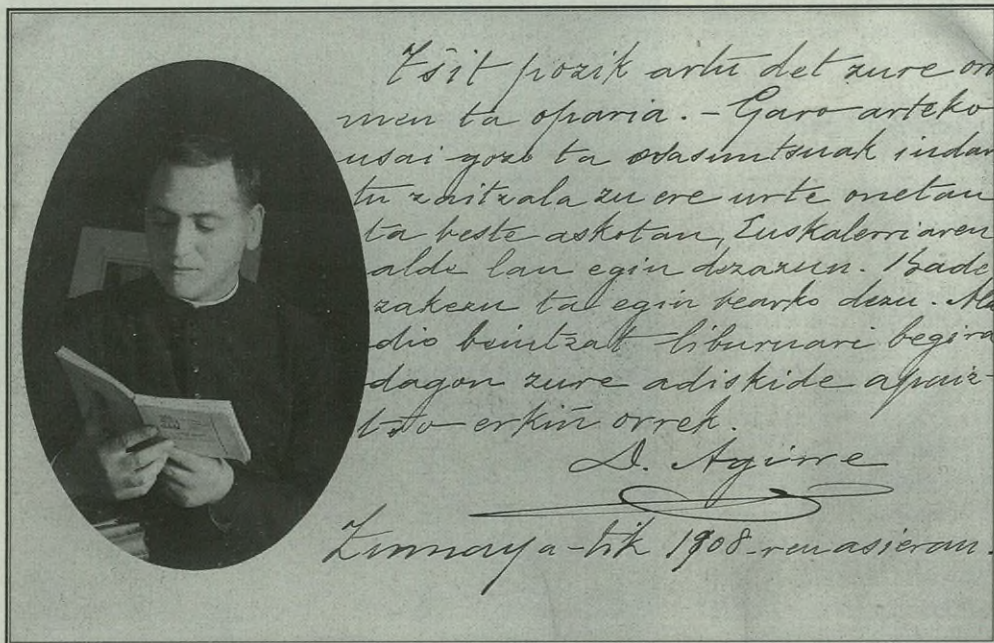 Tšit pozik artu det zure on
men ta oparia. - Garo arteko
usai gozo ta osasuntsuak indar
tu zaitzala zu ere urte onetan
ta beste askotan, Euskalerriaren
alde lan egin dezazun. Bade
zakezu ta egin bearko dezu.
dio beintzat liburuari begira
dagon zure adiskide apaiz-
txo erkiñ orrek.
D. Agirre
Zumaya-tik 1908-ren asieran.